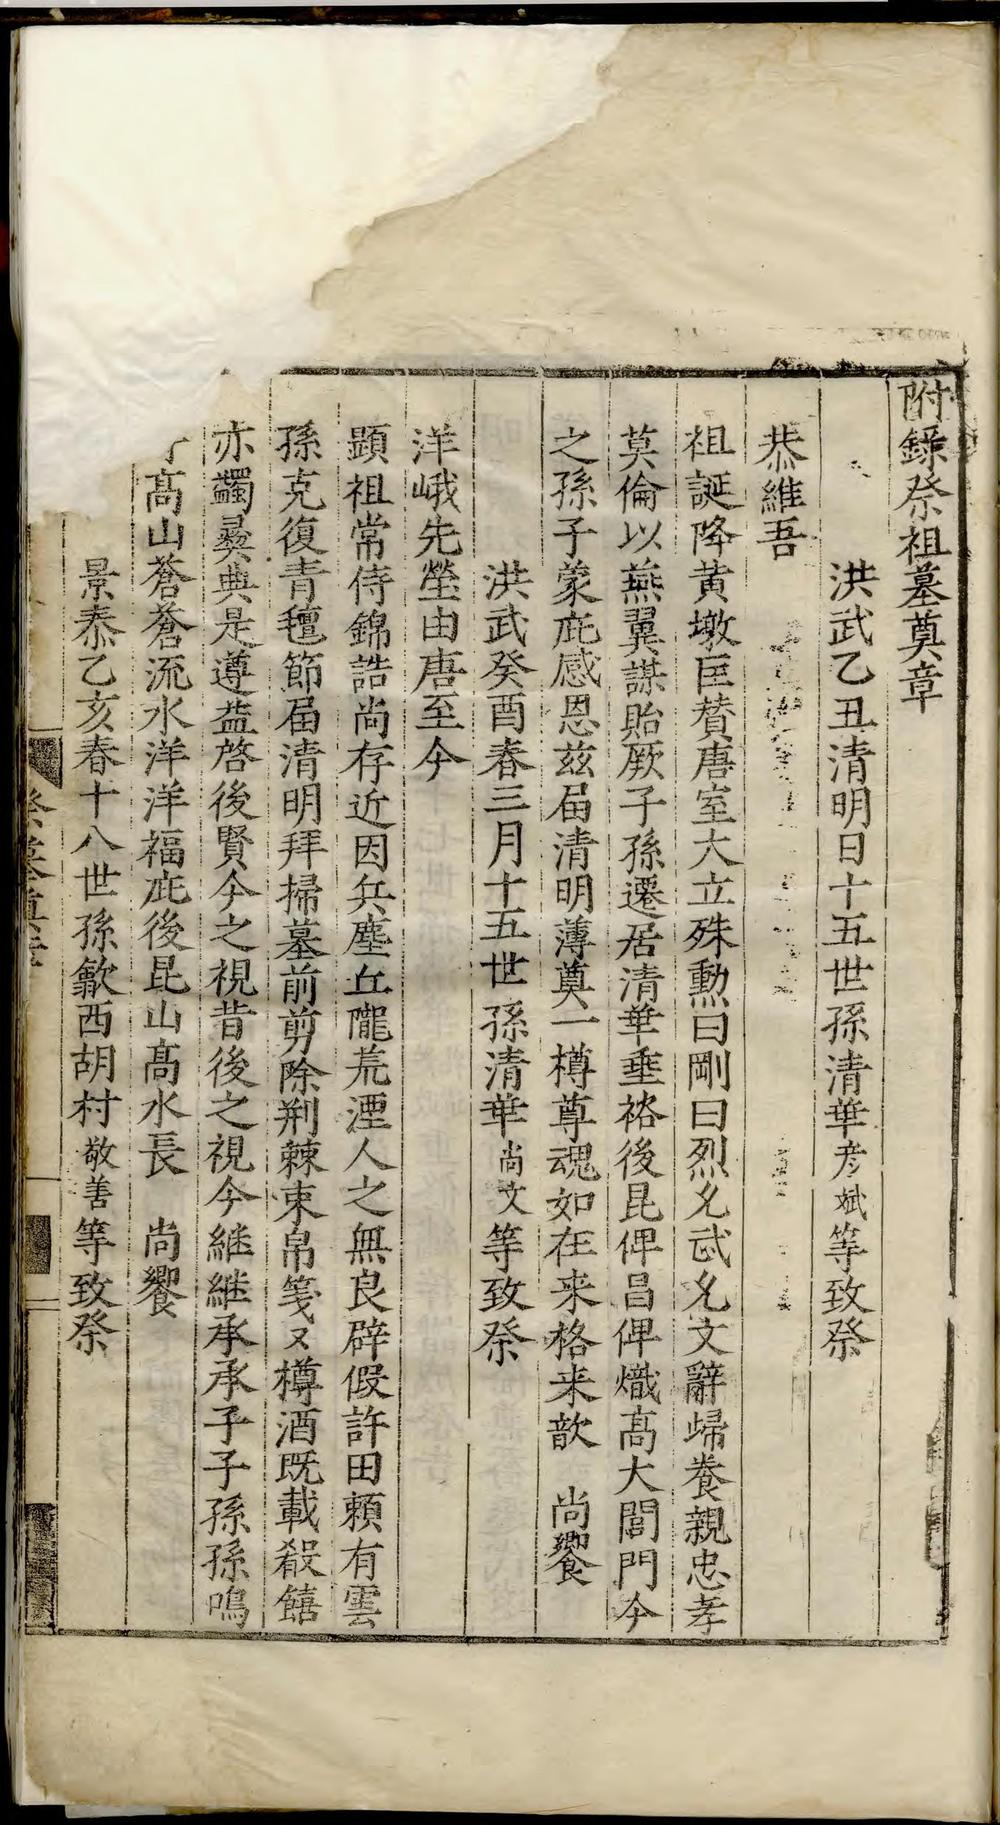 附錄祭祖墓奠章
洪武乙丑清明日十五世孫清華彥斌等致祭
恭維吾
祖誕降黃墩匡賛唐室大立殊勲曰剛曰烈允武允文辭歸養親忠孝
莫倫以燕翼謀貽厥子孫遷居清華垂裕後昆俾昌俾熾髙大閭門今
之孫子蒙庇感恩兹届清明薄奠一樽尊魂如在来格来歆　尚饗
洪武癸酉春三月十五世孫清華尚文等致祭
洋峨先塋由唐至今
顕祖常侍錦誥尚存近因兵塵丘隴荒湮人之無良辟假許田頼有雲
孫克復青氊節届清明拜掃墓前剪除荆棘束帛箋又樽酒既載殽饎
亦蠲彞典是遵益啓後賢今之視昔後之視今継継承承子子孫孫鳴
髙山蒼蒼流水洋洋福庇後昆山髙水長　尚饗
景泰乙亥春十八世孫歙西胡村敬善等致祭
祭墓奠章